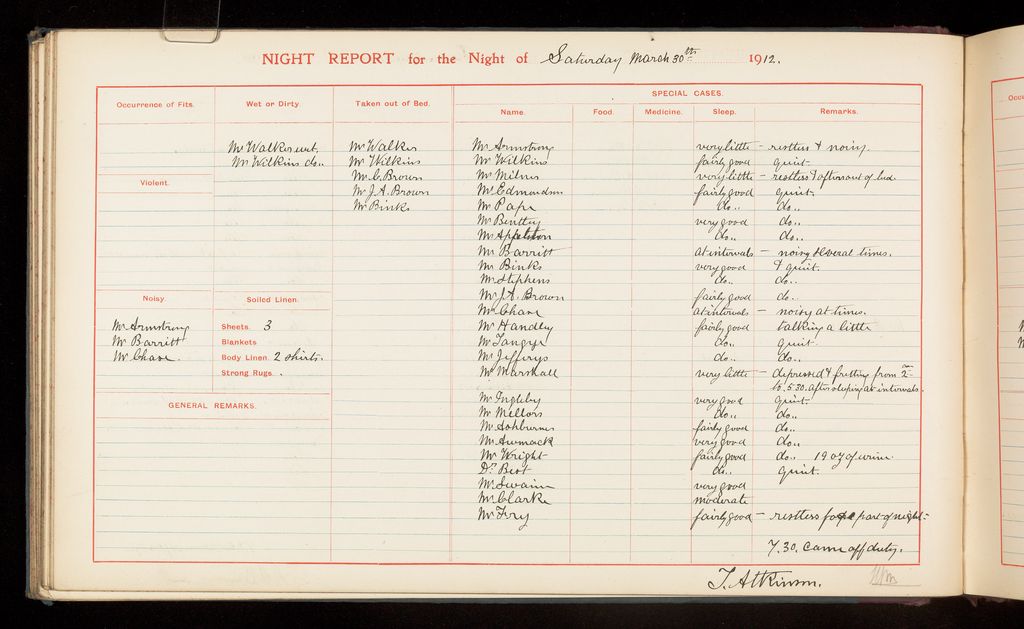 NIGHT REPORT for the Night of Saturday March 30th 1912.
SPECIAL CASES.
Occurrence of Fits. Wet or Dirty. Taken out of Bed. Name. Food. Medicine. Sleep. Remarks.
Mr Walker wet. Mr Walker Mr Armstrong very little – restless & noisy.
Mr Wilkins do.. Mr Wilkins Mr Wilkins fairly good quiet.
Mr C. Brown Mr Milnes very little – restless & often out of bed.
Violent. Mr J. A. Brown Mr Edmondson fairly good quiet.
Mr Binks Mr Pape do.. do..
Mr Bentley very good do..
Mr Appleton do.. do..
Mr Barritt at intervals – noisy several times.
Mr Binks very good & quiet.
Mr Stephens do.. do..
Noisy. Soiled Linen. Mr J. A. Brown fairly good do..
Mr Chase at intervals – noisy at times.
Mr Armstrong Sheets. 3 Mr Handley fairly good talking a little
Mr Barritt Blankets Mr Tangye do.. quiet.
Mr Chase. Body Linen. 2 shirts. Mr Jefferys do.. do..
Strong Rugs. . Mr Marshall very little – depressed & fretting from 2
to 5.30. after sleeping at intervals.
GENERAL REMARKS. Mr Ingleby very good quiet.
Mr Mellors do.. do..
Mr Ashburner fairly good do..
Mr Awmack very good do..
Mr Wright fairly good do.. 19 oz of urine
Dr. Best do.. quiet.
Mr Swain very good
Mr Clarke moderate
Mr Fry fairly good – restless part of night.
7.30. Came off duty.
T. Atkinson.